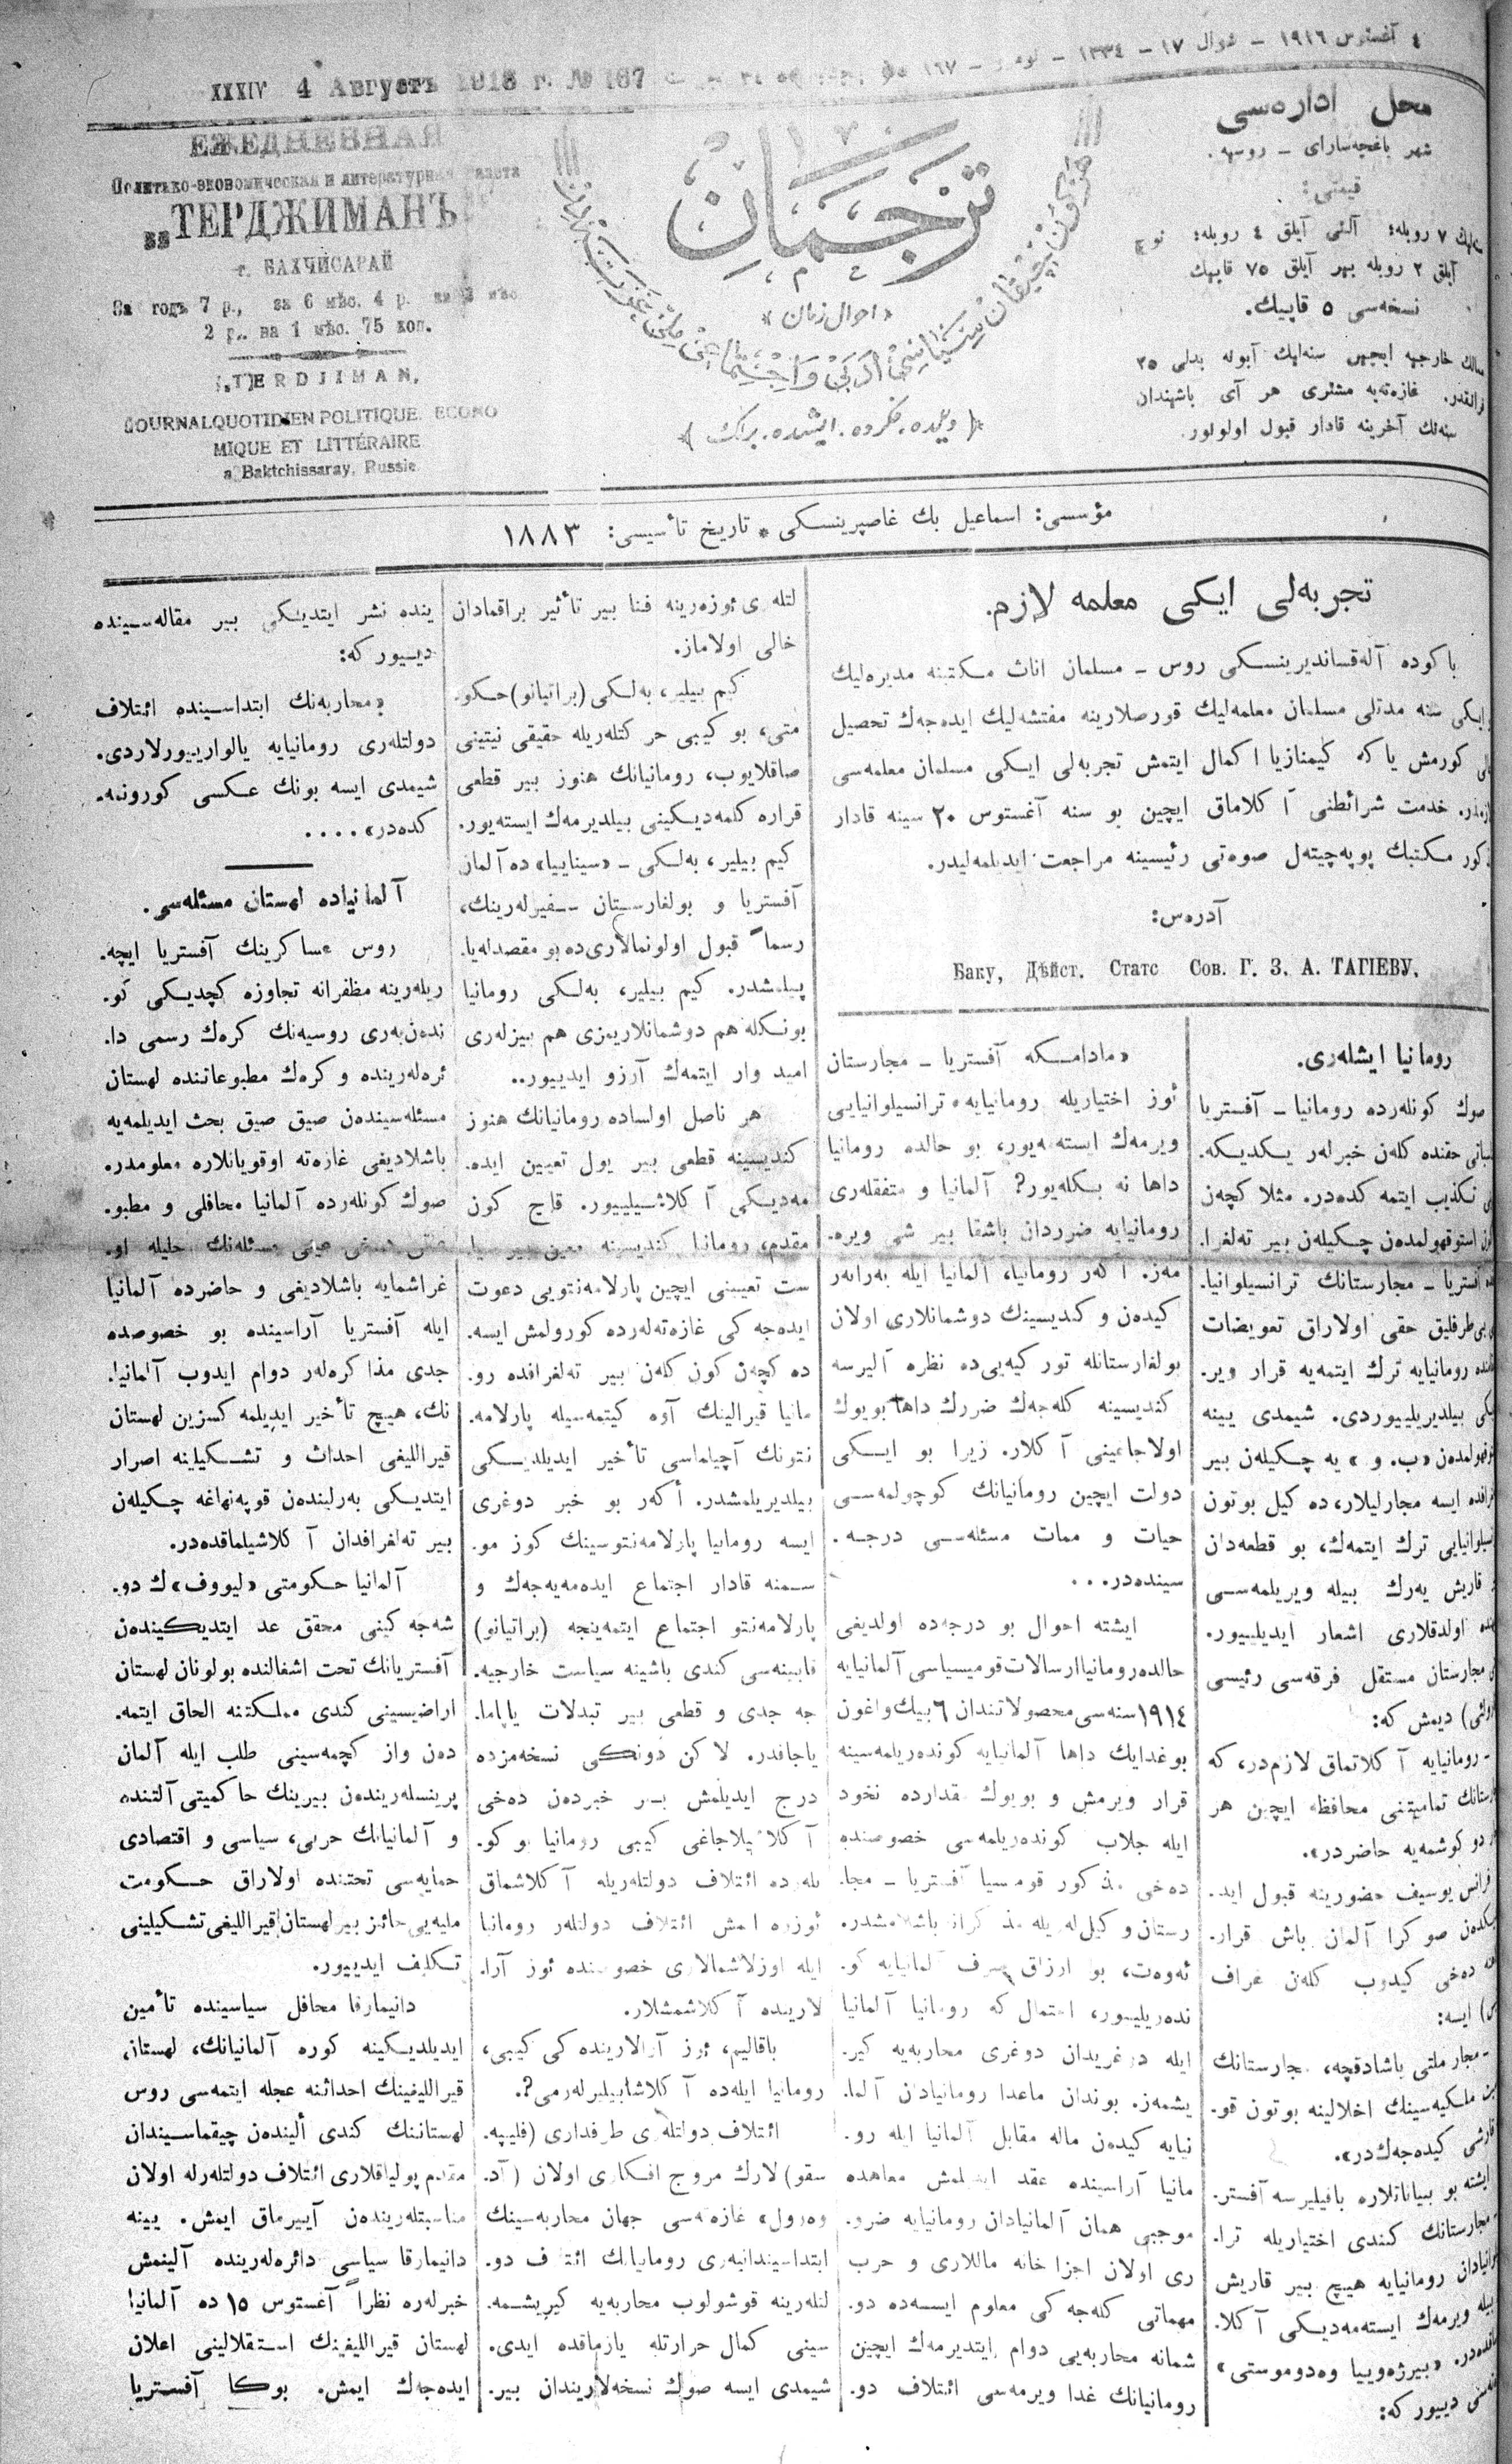 ٤ آغستوس ١٩١٦ – شوال ١٧ – ١٣٣٤ – نومرو – ١٦٧
XXXIV 4 Августъ 1916 г. № 167
محل اداره‌سی
شهر باغچه‌سارای – روسیه.
قیمتی:
سنه‌لیك ٧ روبله؛ آلتی آیلق ٤ روبله؛ اوچ
آیلق ٢ روبله بیر آیلق ٧٥ قاپیك
نسخه‌سی ٥ قاپیك.
ممالك خارجیه ایچین سنه‌لیك آبونه بدلی ٢٥
فرانقدر. غازه‌ته‌یه مشتری هر آی باشندان
سنه‌نك آخرینه قادار قبول اولونور.
ترجمان
«احوال زمان»
﴿دیلده، فكرده، ایشده، برلك﴾
ЕЖЕДНЕВНАЯ
Политико-экономическая и литературная газета
ТЕРДЖИМАНЪ
г. БАХЧИСАРАЙ
За годъ 7 р., за 6 мѣс. 4 р. за 3 мѣс
2 р., на 1 мѣс. 75 коп.
„TERDJIMAN„
JOURNAL QUOTIDIEN POLITIQUE, ECONO
MIQUE ET LITTÉRAIRE
a Baktchissaray, Russie.
مؤسسی: اسماعیل بك غاصپرینسكی * تاریخ تأسیسی: ١٨٨٣
تجربه‌لی ایكی معلمه لازم.
باكوده آله‌قساندیرینسكی روس – مسلمان اناث مكتبنه مدیره‌لیك
و ایكی سنه مدتلی مسلمان معلمه‌لیك قورصلارینه مفتشه‌لیك ایده‌جه‌ك تحصیل
عالی كورمش یا كه گیمنازیا اكمال ایتمش تجربه‌لی ایكی مسلمان معلمه‌سی
لازمدر. خدمت شرائطنی آكلاماق ایچین بو سنه آغستوس ٢٠ سینه قادار
مذكور مكتبك پوپه‌چیته‌ل صوه‌تی رئیسینه مراجعت ایدیلمه‌لیدر.
آدره‌س:
Баку, Дѣйст. Статс Сов. Г. З. А. ТАГІЕВУ.
رومانیا ایشله‌ری.
صوك كونله‌رده رومانیا – آفستریا
حقنده كله‌ن خبرله‌ر یكدیكه.
تكذیب ایتمه كده‌در. مثلا كچه‌ن
استوقهولمدن چكیله‌ن بیر ته‌لغرا.
آفستریا – مجارستانك ترانسیلوانیا.
بی‌طرفلیق حقی اولاراق تعویضات
رومانیایه ترك ایتمه‌یه قرار ویر.
بیلدیریلییوردی. شیمدی یینه
«ب. و» یه چكیله‌ن بیر
ایسه مجارلیلار، ده كیل بوتون
ترك ایتمه‌ك، بو قطعه‌دان
قاریش یه‌رك بیله ویریلمه‌سی
اولدقلاری اشعار ایدیلییور.
مجارستان مستقل فرقه‌سی رئیسی
دیمش كه:
– رومانیایه آكلاتماق لازم‌در، كه
تمامیتنی محافظه ایچین هر
كوشمه‌یه حاضردر».
فرانس یوسیف حضورینه قبول اید.
صوكرا آلمان باش قرار.
ده‌خی كیدوب كله‌ن غراف
ایسه:
– مجار ملتی یاشادقچه، مجارستانك
ملكیه‌سینك اخلالینه بوتون قو.
قارشی كیده‌جه‌ك‌در».
ایشته بو بیاناتلاره باقیلیرسه آفستر.
مجارستانك كندی اختیاریله ترا.
رومانیایه هیچ بیر قاریش
بیله ویرمه‌ك ایسته‌مه‌دیكی آكلا.
«بیرژه‌وییا وه‌دوموستی»
دییور كه:
«مادامكه آفستریا – مجارستان
ئوز اختیاریله رومانیایه ترانسیلوانیایی
ویرمه‌ك ایسته‌مه‌یور، بو حالده رومانیا
داها نه بكله‌یور؟ آلمانیا و متفقله‌ری
رومانیایه ضرردان باشقا بیر شی ویره.
مه‌ز. اكه‌ر رومانیا، آلمانیا ایله به‌رابه‌ر
كیده‌ن و كندیسینك دوشمانلاری اولان
بولغارستانله توركیه‌یی‌ده نظره آلیرسه
كندیسینه كله‌جه‌ك ضررك داها بویوك
اولاجاغینی آكلار. زیرا بو ایكی
دولت ایچین رومانیانك كوچولمه‌سی
حیات و ممات مسئله‌سی درجه.
سینده‌در...
ایشته احوال بو درجه‌ده اولدیغی
حالده رومانیا ارسالات قومیسیاسی آلمانیایه
١٩١٤ سنه‌سی محصولاتندان ٦ بیك واغون
بوغدایك داها آلمانیایه كونده‌ریلمه‌سینه
قرار ویرمش و بویوك مقدارده نخود
ایله جلاب كونده‌ریلمه‌سی خصوصنده
ده‌خی مذكور قومیسیا آفستریا – مجا.
رستان وكیل‌له‌ریله مذاكراته باشلامشدر.
ئه‌وه‌ت، بو ارزاق صرف آلمانیایه كو.
نده‌ریلییور، احتمال كه رومانیا آلمانیا
ایله دوغریدان دوغری محاربه‌یه كیر.
یشمه‌ز. بوندان ماعدا رومانیادان آلما.
نیایه كیده‌ن ماله مقابل آلمانیا ایله رو.
مانیا آراسینده عقد ایدیلمش معاهده
موجبی همان آلمانیادان رومانیایه ضرو.
ری اولان اجزا خانه ماللاری و حرب
مهماتی كله‌جه كی معلوم ایسه‌ده دو.
شمانه محاربه‌یی دوام ایتدیرمه‌ك ایچین
رومانیانك غدا ویرمه‌سی ائتلاف دو.
لتله‌ری ئوزه‌رینه فنا بیر تأثیر براقمادان
خالی اولاماز.
كیم بیلیر، به‌لكی (براتیانو) حكو.
متی، بو كیبی حركتله‌ریله حقیقی نیتینی
صاقلایوب، رومانیانك هنوز بیر قطعی
قراره كلمه‌دیكینی بیلدیرمه‌ك ایسته‌یور.
كیم بیلیر، به‌لكی – «سینایا» ده آلمان
آفستریا و بولغارستان سفیرله‌رینك،
رسماً قبول اولونمالاری‌ده بو مقصدله‌یا.
پیلمشدر. كیم بیلیر، به‌لكی رومانیا
بونكله هم دوشمانلاریمزی هم بیزله‌ری
امید وار ایتمه‌ك آرزو ایدییور..
هر ناصل اولساده رومانیانك هنوز
كندیسینه قطعی بیر یول تعیین ایده.
مه‌دیكی آكلاشیلییور. قاچ كون
مقدم، رومانیا كندیسینه معین بیر سیا.
ست تعیینی ایچین پارلامه‌نتویی دعوت
ایده‌جه كی غازه‌ته‌له‌رده كورولمش ایسه.
ده كچه‌ن كون كله‌ن بیر ته‌لغرافده رو.
مانیا قیرالینك آوه كیتمه‌سیله پارلامه.
نتونك آچیلماسی تأخیر ایدیلدیكی
بیلدیریلمشدر. أكه‌ر بو خبر دوغری
ایسه رومانیا پارلامه‌نتوسینك كوز مو.
سمنه قادار اجتماع ایده‌مه‌یه‌جه‌ك و
پارلامه‌نتو اجتماع ایتمه‌ینجه (براتیانو)
قابینه‌سی كندی باشینه سیاست خارجیه.
جه جدی و قطعی بیر تبدلات یاپاما.
یاجاقدر. لاكن دونكی نسخه‌مزده
درج ایدیلمش بیر خبردن ده‌خی
آكلاشیلاجاغی كیبی رومانیا بو كو.
نله‌رده ائتلاف دولتله‌ریله آكلاشماق
ئوزره ایمش ائتلاف دولتله‌ر رومانیا
ایله اوزلاشمالاری خصوصنده ئوز آرا.
لارینده آكلاشمشلار.
باقالیم، ئوز آرالارینده كی كیبی،
رومانیا ایله‌ده آكلاشابیلیرله‌رمی؟.
ائتلاف دولتله‌ری طرفداری (فلیپه.
سقو) لارك مروج افكاری اولان (آد.
وه‌رول» غازه‌ته‌سی جهان محاربه‌سینك
ابتداسیندانبه‌ری رومانیانك ائتلاف دو.
لتله‌رینه قوشولوب محاربه‌یه كیریشمه.
سینی كمال حرارتله یازماقده ایدی.
شیمدی ایسه صوك نسخه‌لاریندان بیر.
ینده نشر ایتدیكی بیر مقاله‌سینده
دییور كه:
«محاربه‌نك ابتداسینده ائتلاف
دولتله‌ری رومانیایه یالوارییورلاردی.
شیمدی ایسه بونك عكسی كورونمه.
كده‌در»....
آلمانیاده لهستان مسئله‌سی.
روس عساكرینك آفستریا ایچه.
ریله‌رینه مظفرانه تجاوزه كچدیكی كو.
نده‌ن‌به‌ری روسیه‌نك كره‌ك رسمی دا.
ئره‌له‌رینده و كره‌ك مطبوعاتنده لهستان
مسئله‌سیندن صیق صیق بحث ایدیلمه‌یه
باشلادیغی غازه‌ته اوقویانلاره معلومدر.
صوك كونله‌رده آلمانیا محافلی و مطبو.
عاتی ده‌خی عینی مسئله‌نك حلیله او.
غراشمایه باشلادیغی و حاضرده آلمانیا
ایله آفستریا آراسینده بو خصوصده
جدی مذاكره‌له‌ر دوام ایدوب آلمانیا.
نك، هیچ تأخیر ایدیلمه كسزین لهستان
قیراللیغی احداث و تشكیلینه اصرار
ایتدیكی به‌رلیندن قوپه‌نهاغه چكیله‌ن
بیر ته‌لغرافدان آكلاشیلماقده‌در.
آلمانیا حكومتی «لیووف»ك دو.
شه‌جه كینی محقق عد ایتدیكیندن
آفستریانك تحت اشغالنده بولونان لهستان
اراضیسینی كندی مملكتنه الحاق ایتمه.
دن واز كچمه‌سینی طلب ایله آلمان
پرینسله‌ریندن بیرینك حاكمیتی آلتنده
و آلمانیانك حربی، سیاسی و اقتصادی
حمایه‌سی تحتنده اولاراق حكومت
ملیه‌یی حائز بیر لهستان قیراللیغی تشكیلینی
تكلیف ایدییور.
دانیمارقا محافل سیاسینده تأمین
ایدیلدیكینه كوره آلمانیانك، لهستان
قیراللیغینك احداثنه عجله ایتمه‌سی روس
لهستاننك كندی ألیندن چیقماسیندان
مقدم پولیاقلاری ائتلاف دولتله‌رله اولان
مناسبتله‌ریندن آییرماق ایمش. یینه
دانیمارقا سیاسی دائره‌له‌رینده آلینمش
خبرله‌ره نظراً آغستوس ١٥ ده آلمانیا
لهستان قیراللیغینك استقلالینی اعلان
ایده‌جه‌ك ایمش. بوكا آفستریا